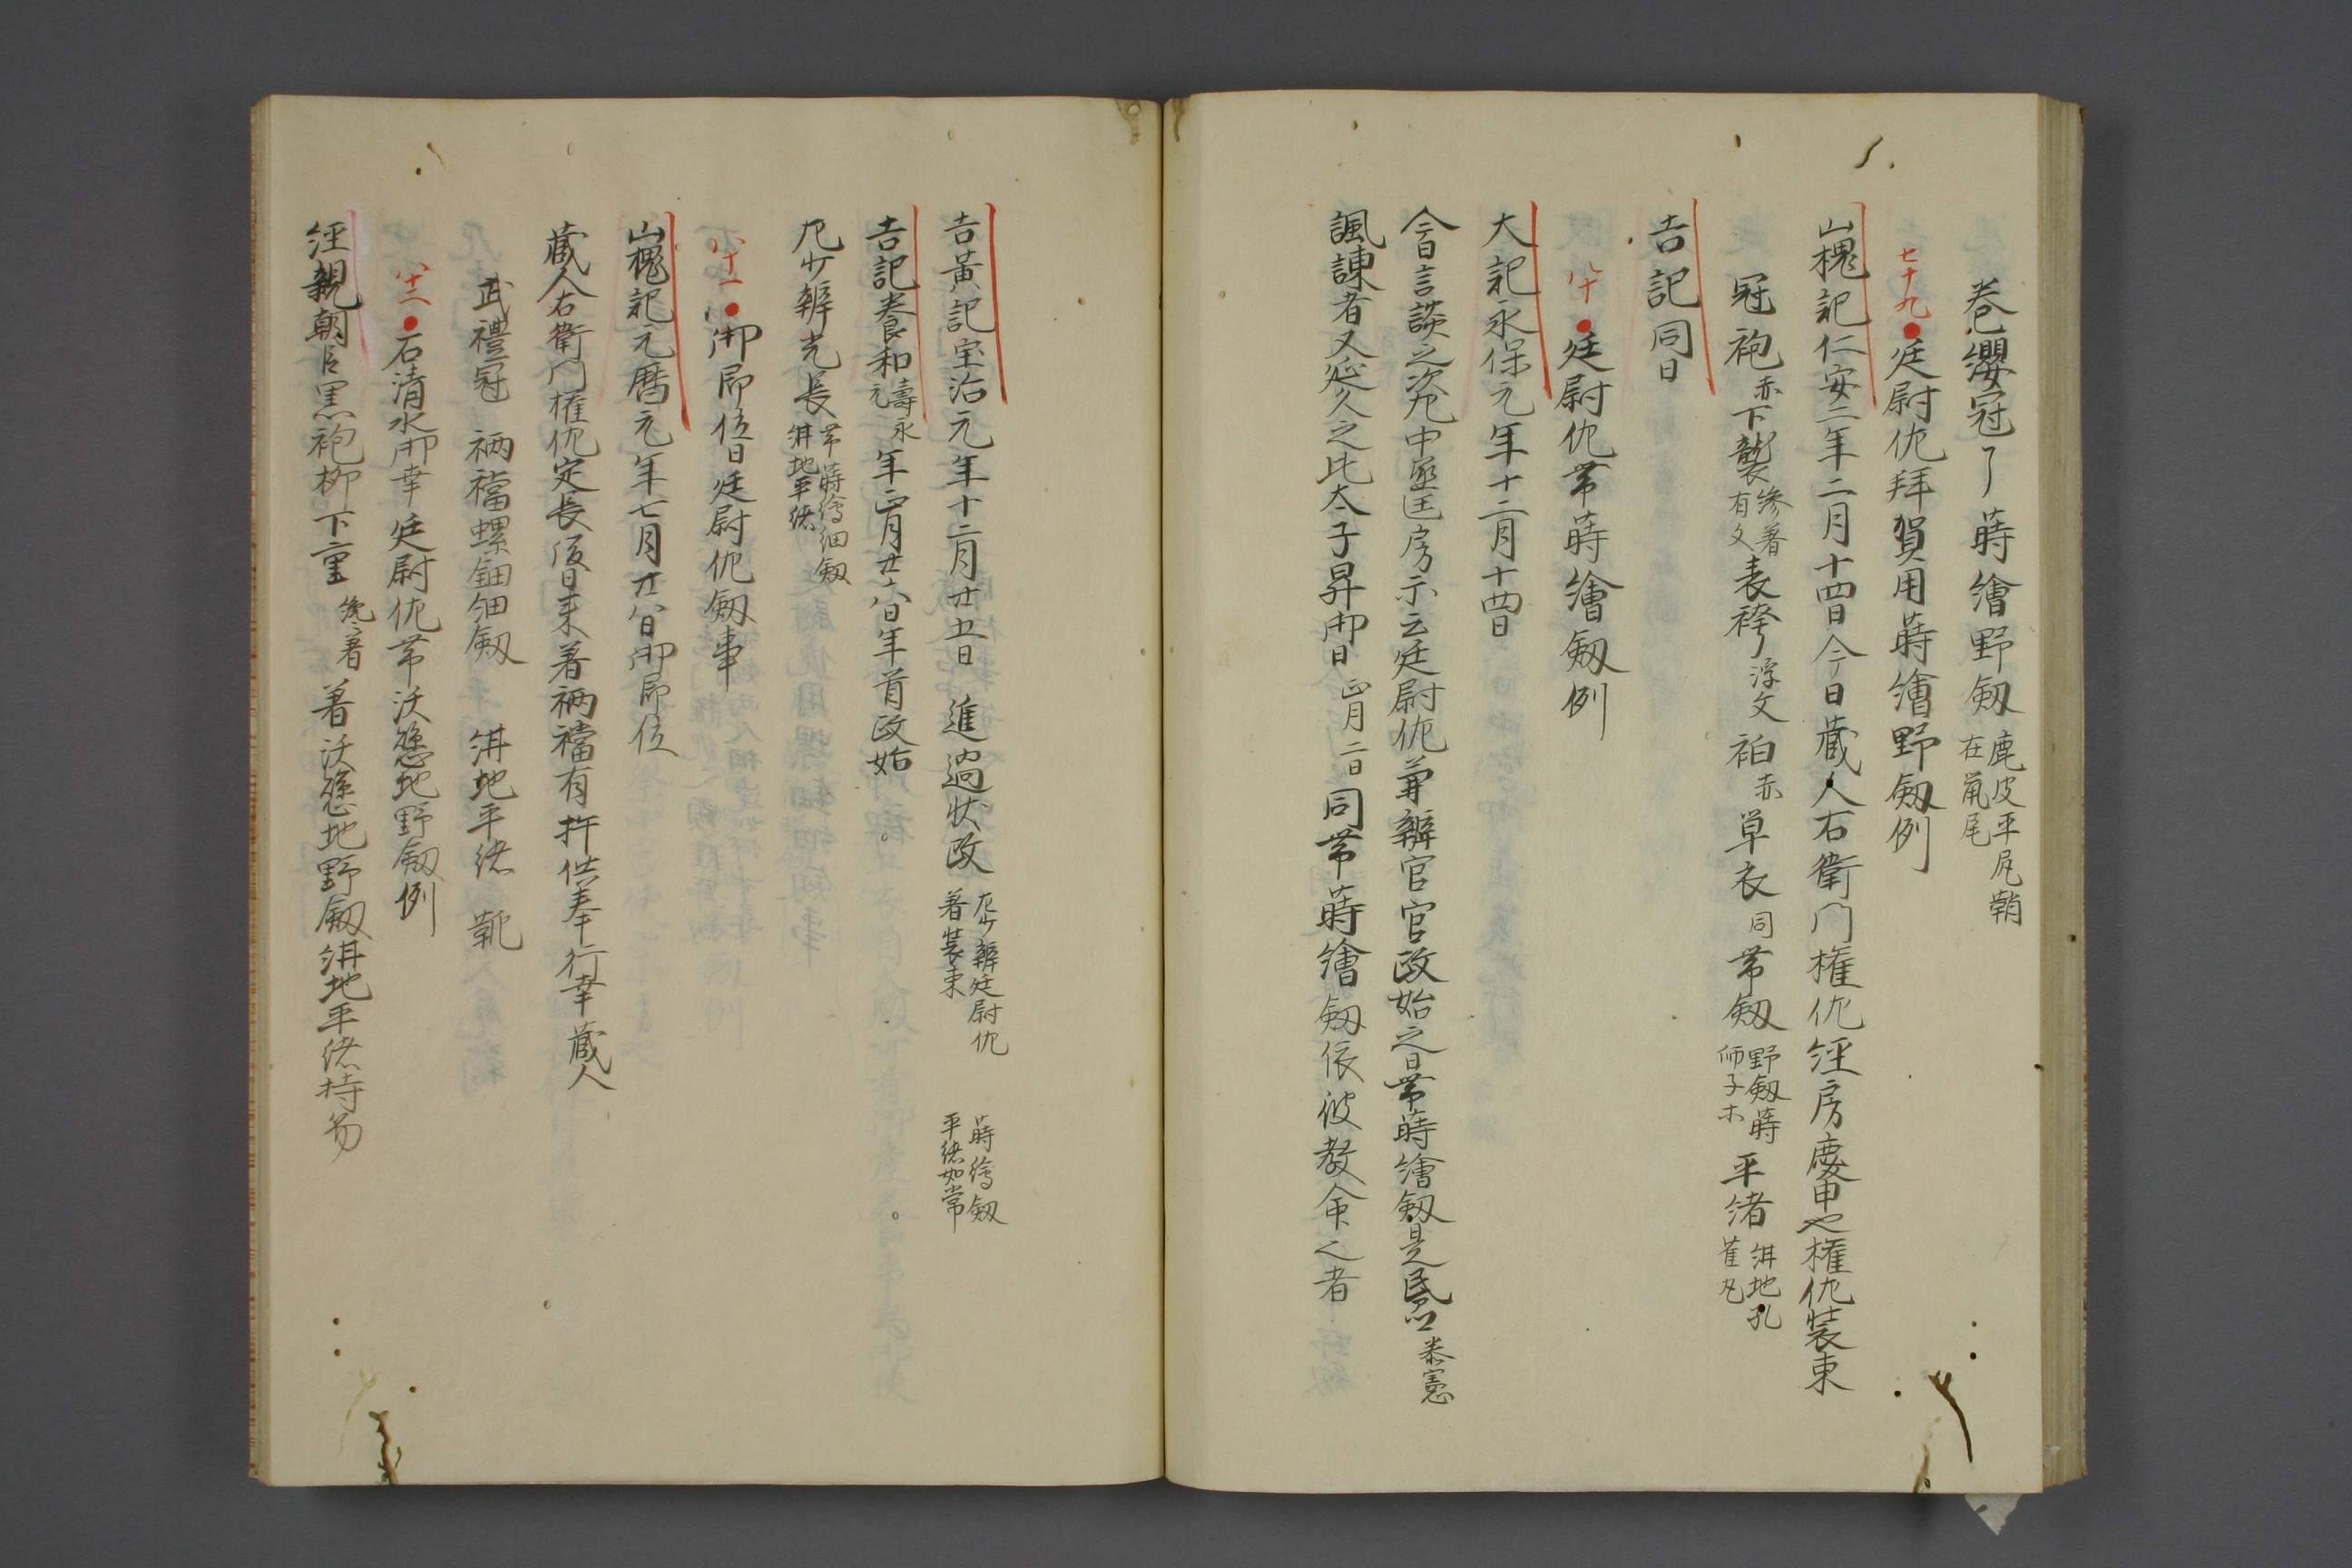 巻纓冠了蒔繪野釼 鹿皮平尻鞘 在鼠尾
七十九●廷尉佐拜賀用蒔繪野釼例
山槐記仁安二年二月十四日今日蔵人右衛門権佐經房慶申也権佐裝束
冠袍赤下襲 縿著 有文 表袴浮文 袙赤草衣同帶釼 野釼蒔 師子ホ 平緒 紺地孔 雀丸
吉記同日
八十●廷尉佐帶蒔繪釼例
大記永保元年十二月十四日
今日言談之次左中丞匡房示云廷尉佐兼辨官官政始之日帶蒔繪釼是 泰憲
諷諫者又延久之比太子昇御日正月二日同帶蒔繪釼依彼教命之者
吉黃記宝治元年十二月廿五日 進過状政 左少辨廷尉佐 著裝束 蒔繪釼 平緒如常
吉記養和 壽永 元 年正月廿八日年首政始
左少辨光長 帶蒔繪細釼 紺地平緒
八十一●御即位日廷尉佐釼事
山槐記元曆元年七月廿八日御即位
蔵人右衛門権佐定長後日来著裲襠有許供奉行幸蔵人
武禮冠 裲襠螺鈿細釼 紺地平緒 靴
八十二●石清水御幸廷尉佐帶沃懸地野釼例
經親朝臣黑袍柳下重 縿著 著沃懸地野釼紺地平緒持笏